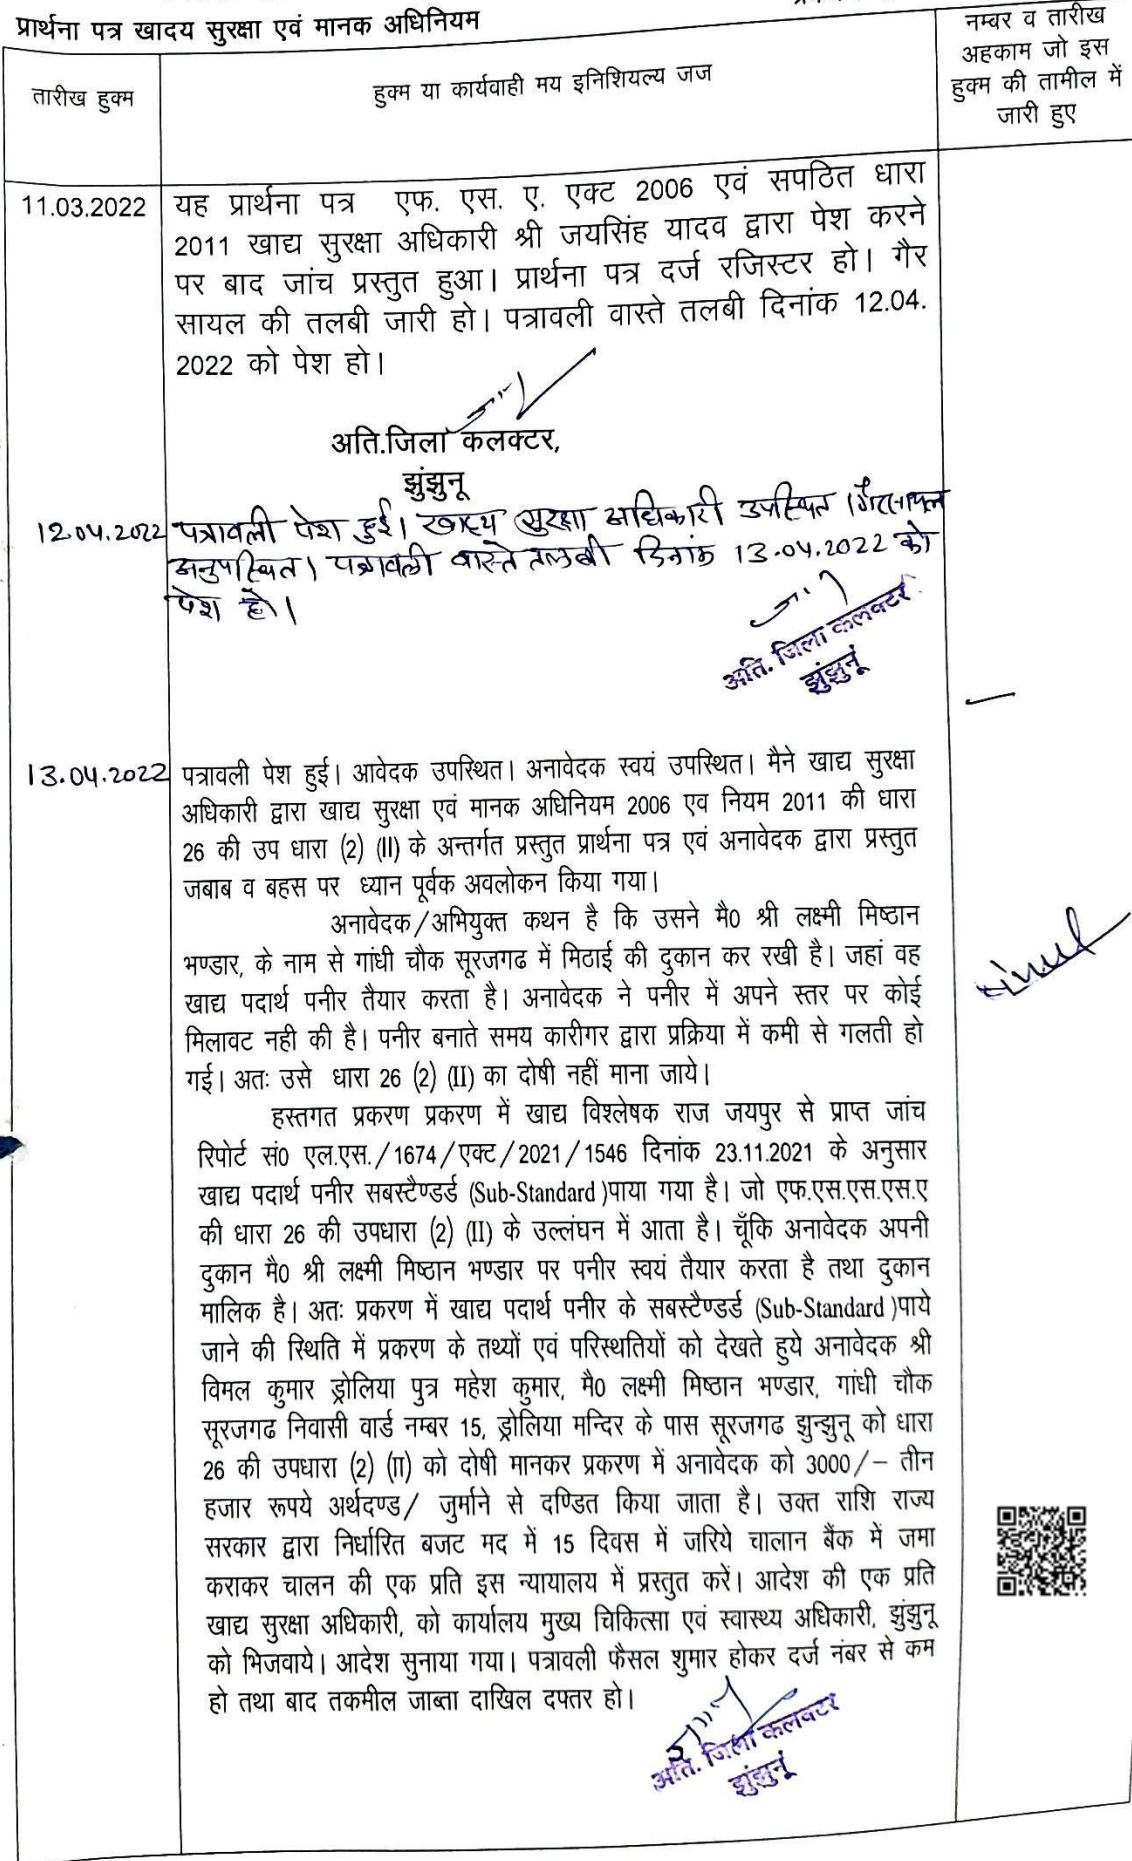 प्रार्थना पत्र खादय सुरक्षा एवं मानक अधिनियम
तारीख हुक्म
हुक्म या कार्यवाही मय इनिशियल्य जज
नम्बर व तारीख
अहकाम जो इस
हुक्म की तामील में
जारी हुए
11.03.2022
यह प्रार्थना पत्र एफ. एस. ए. एक्ट 2006 एवं सपठित धारा
2011 खाद्य सुरक्षा अधिकारी श्री जयसिंह यादव द्वारा पेश करने
पर बाद जांच प्रस्तुत हुआ। प्रार्थना पत्र दर्ज रजिस्टर हो। गैर
सायल की तलबी जारी हो। पत्रावली वास्ते तलबी दिनांक 12.04.
2022 को पेश हो।
अति.जिला कलक्टर,
झुंझुनू
12.04.2022 पत्रावली पेश हुई। खाद्य सुरक्षा अधिकारी उपस्थित। गैरसायल
अनुपस्थित। पत्रावली वास्ते तलबी दिनांक 13.04.2022 को
पेश हो।
अति. जिला कलक्टर
झुंझुनूं
13.04.2022 पत्रावली पेश हुई। आवेदक उपस्थित। अनावेदक स्वयं उपस्थित। मैने खाद्य सुरक्षा
अधिकारी द्वारा खाद्य सुरक्षा एवं मानक अधिनियम 2006 एव नियम 2011 की धारा
26 की उप धारा (2) (II) के अन्तर्गत प्रस्तुत प्रार्थना पत्र एवं अनावेदक द्वारा प्रस्तुत
जबाब व बहस पर ध्यान पूर्वक अवलोकन किया गया।
अनावेदक/अभियुक्त कथन है कि उसने मै0 श्री लक्ष्मी मिष्ठान
भण्डार, के नाम से गांधी चौक सूरजगढ में मिठाई की दुकान कर रखी है। जहां वह
खाद्य पदार्थ पनीर तैयार करता है। अनावेदक ने पनीर में अपने स्तर पर कोई
मिलावट नही की है। पनीर बनाते समय कारीगर द्वारा प्रक्रिया में कमी से गलती हो
गई। अतः उसे धारा 26 (2) (II) का दोषी नहीं माना जाये।
हस्तगत प्रकरण प्रकरण में खाद्य विश्लेषक राज जयपुर से प्राप्त जांच
रिपोर्ट सं0 एल.एस./1674/एक्ट/2021/1546 दिनांक 23.11.2021 के अनुसार
खाद्य पदार्थ पनीर सबस्टैण्डर्ड (Sub-Standard )पाया गया है। जो एफ.एस.एस.एस.ए
की धारा 26 की उपधारा (2) (II) के उल्लंघन में आता है। चूँकि अनावेदक अपनी
दुकान मै0 श्री लक्ष्मी मिष्ठान भण्डार पर पनीर स्वयं तैयार करता है तथा दुकान
मालिक है। अतः प्रकरण में खाद्य पदार्थ पनीर के सबस्टैण्डर्ड (Sub-Standard )पाये
जाने की स्थिति में प्रकरण के तथ्यों एवं परिस्थतियों को देखते हुये अनावेदक श्री
विमल कुमार ड्रोलिया पुत्र महेश कुमार, मै0 लक्ष्मी मिष्ठान भण्डार, गांधी चौक
सूरजगढ निवासी वार्ड नम्बर 15, ड्रोलिया मन्दिर के पास सूरजगढ झुन्झुनू को धारा
26 की उपधारा (2) (II) को दोषी मानकर प्रकरण में अनावेदक को 3000/– तीन
हजार रूपये अर्थदण्ड/ जुर्माने से दण्डित किया जाता है। उक्त राशि राज्य
सरकार द्वारा निर्धारित बजट मद में 15 दिवस में जरिये चालान बैंक में जमा
कराकर चालन की एक प्रति इस न्यायालय में प्रस्तुत करें। आदेश की एक प्रति
खाद्य सुरक्षा अधिकारी, को कार्यालय मुख्य चिकित्सा एवं स्वास्थ्य अधिकारी, झुंझुनू
को भिजवाये। आदेश सुनाया गया। पत्रावली फैसल शुमार होकर दर्ज नंबर से कम
हो तथा बाद तकमील जाब्ता दाखिल दफ्तर हो।
अति. जिला कलक्टर
झुंझुनूं